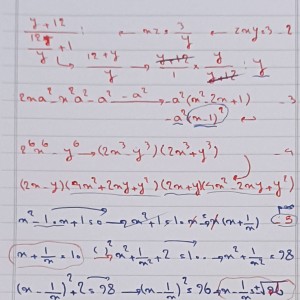 y+12 / (12/y + 1) : ← m2 = 3/y ← 2my = 3 - 2
↳ (12+y)/y → (y+12)/1 × y/(y+12) : y
2ma² - m²a² - a² → -a²(m² - 2m + 1) - 3
-a²(m-1)²
2⁶m⁶ - y⁶ → (2m³ - y³)(2m³ + y³) - 4
(2m - y)(4m² + 2my + y²)(2m + y)(4m² - 2my + y²)
m² - 10m + 1 = 0 → m² + 1 = 10m → m(m + 1/m) - 5
m + 1/m = 10 ()² → m² + 1/m² + 2 = 100 → m² + 1/m² = 98
(m - 1/m)² + 2 = 98 → (m - 1/m)² = 96 → m - 1/m = ±√96